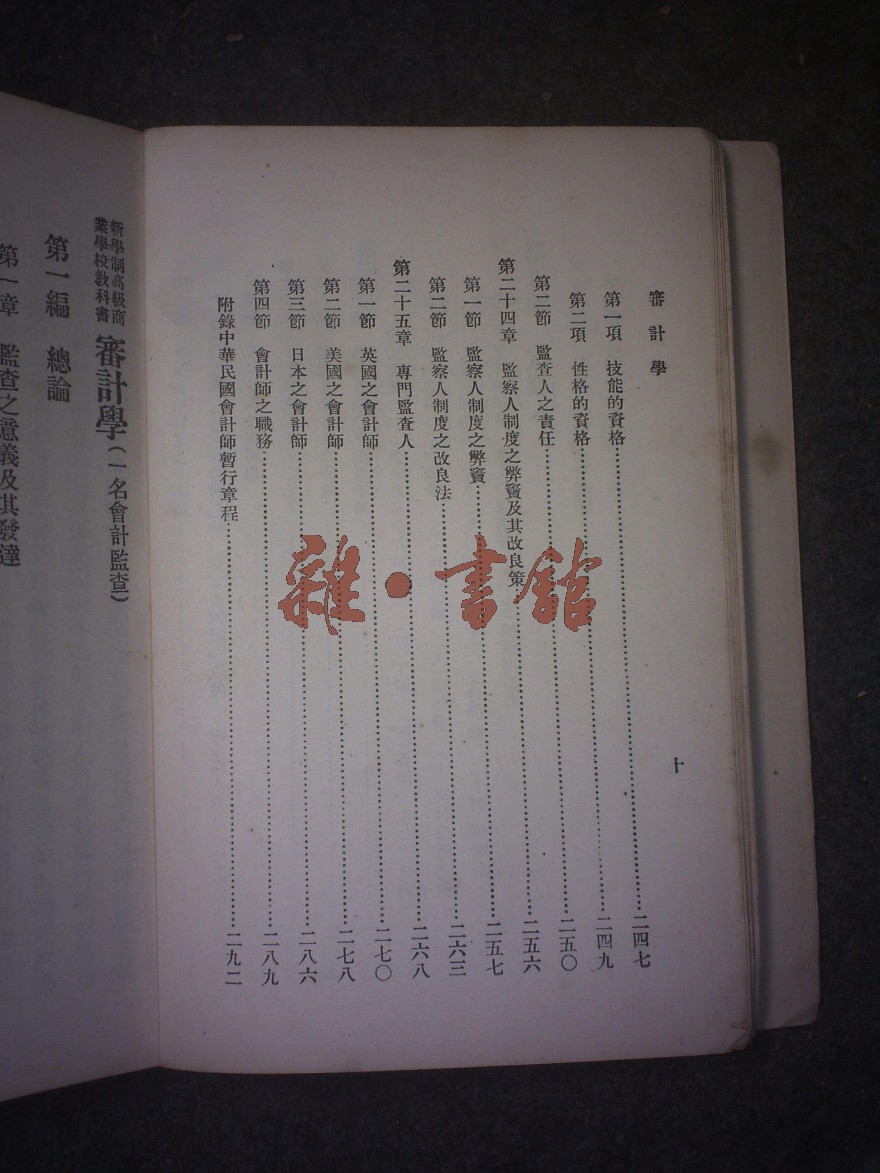 審計學
第一項　技能的資格……二四七
第二項　性格的資格……二四九
第二節　監查人之責任……二五〇
第二十四章　監察人制度之弊竇及其改良策……二五六
第一節　監察人制度之弊竇……二五七
第二節　監察人制度之改良法……二六三
第二十五章　專門監查人……二六八
第一節　英國之會計師……二七〇
第二節　美國之會計師……二七八
第三節　日本之會計師……二八六
第四節　會計師之職務……二八九
附錄中華民國會計師暫行章程……二九二
十
新學制高級商
業學校教科書
審計學（一名會計監查）
第一編　總論
第一章　監查之意義及其發達
雜·書館